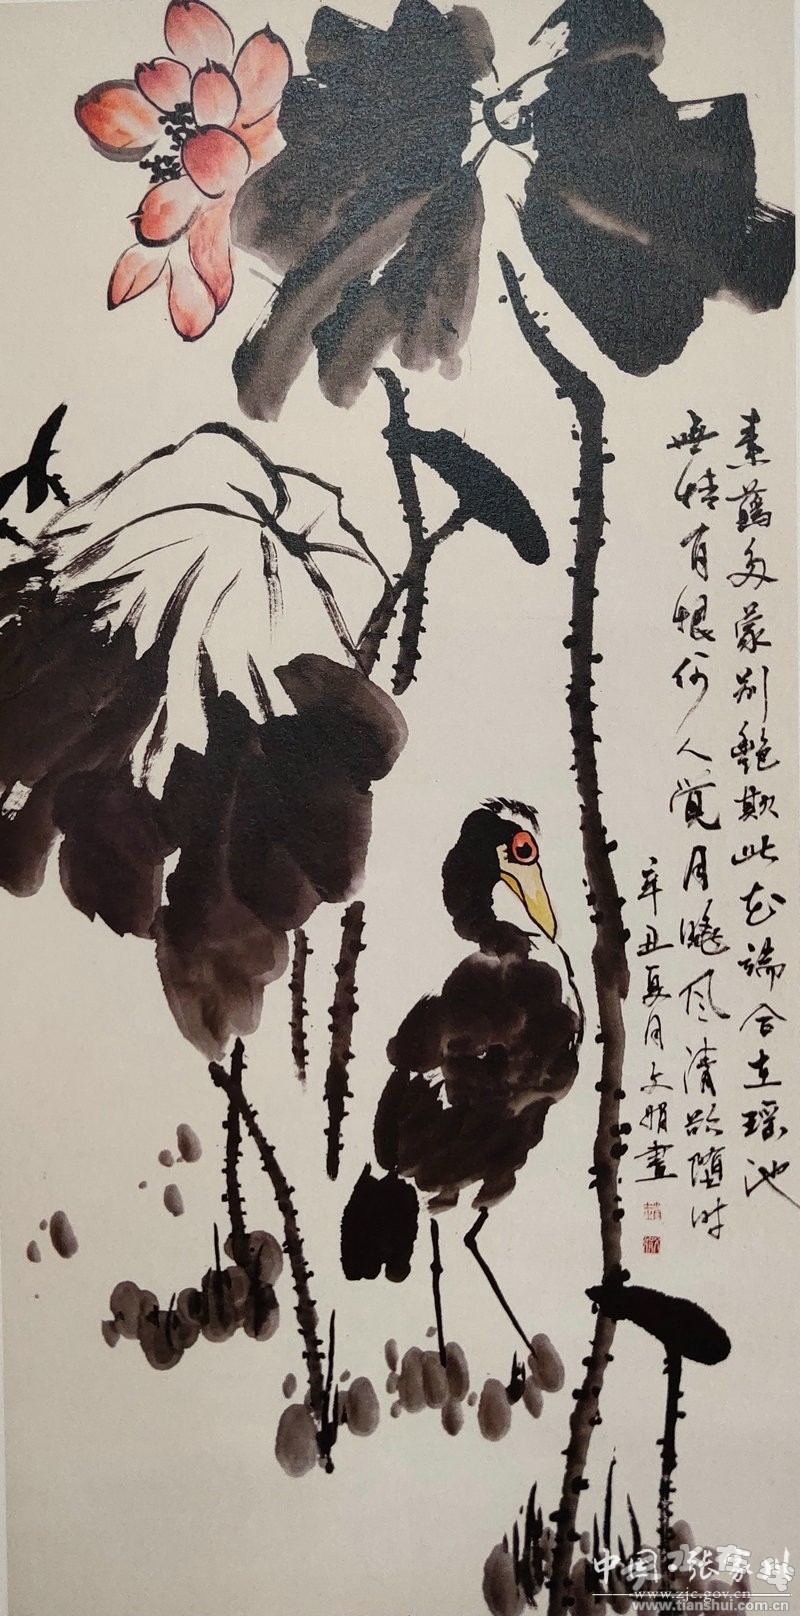 素蘤多蒙别艷欺此花端合在瑶池
無情有恨何人覚月曉風清欲墮时
辛丑夏月文娟畫
中国·张家川
www.zjc.gov.cn
www.tianshui.com.cn